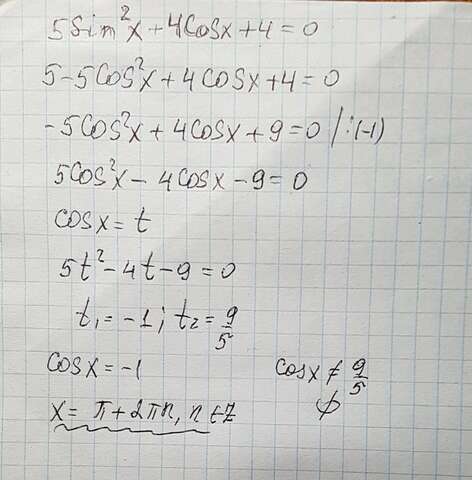 5Sin²x + 4Cosx + 4 = 0
5 - 5Cos²x + 4Cosx + 4 = 0
-5Cos²x + 4Cosx + 9 = 0 /:(-1)
5Cos²x - 4Cosx - 9 = 0
Cosx = t
5t² - 4t - 9 = 0
t₁ = -1; t₂ = 9/5
Cosx = -1 Cosx ≠ 9/5
x = π + 2πn, n ∈ Z ∅